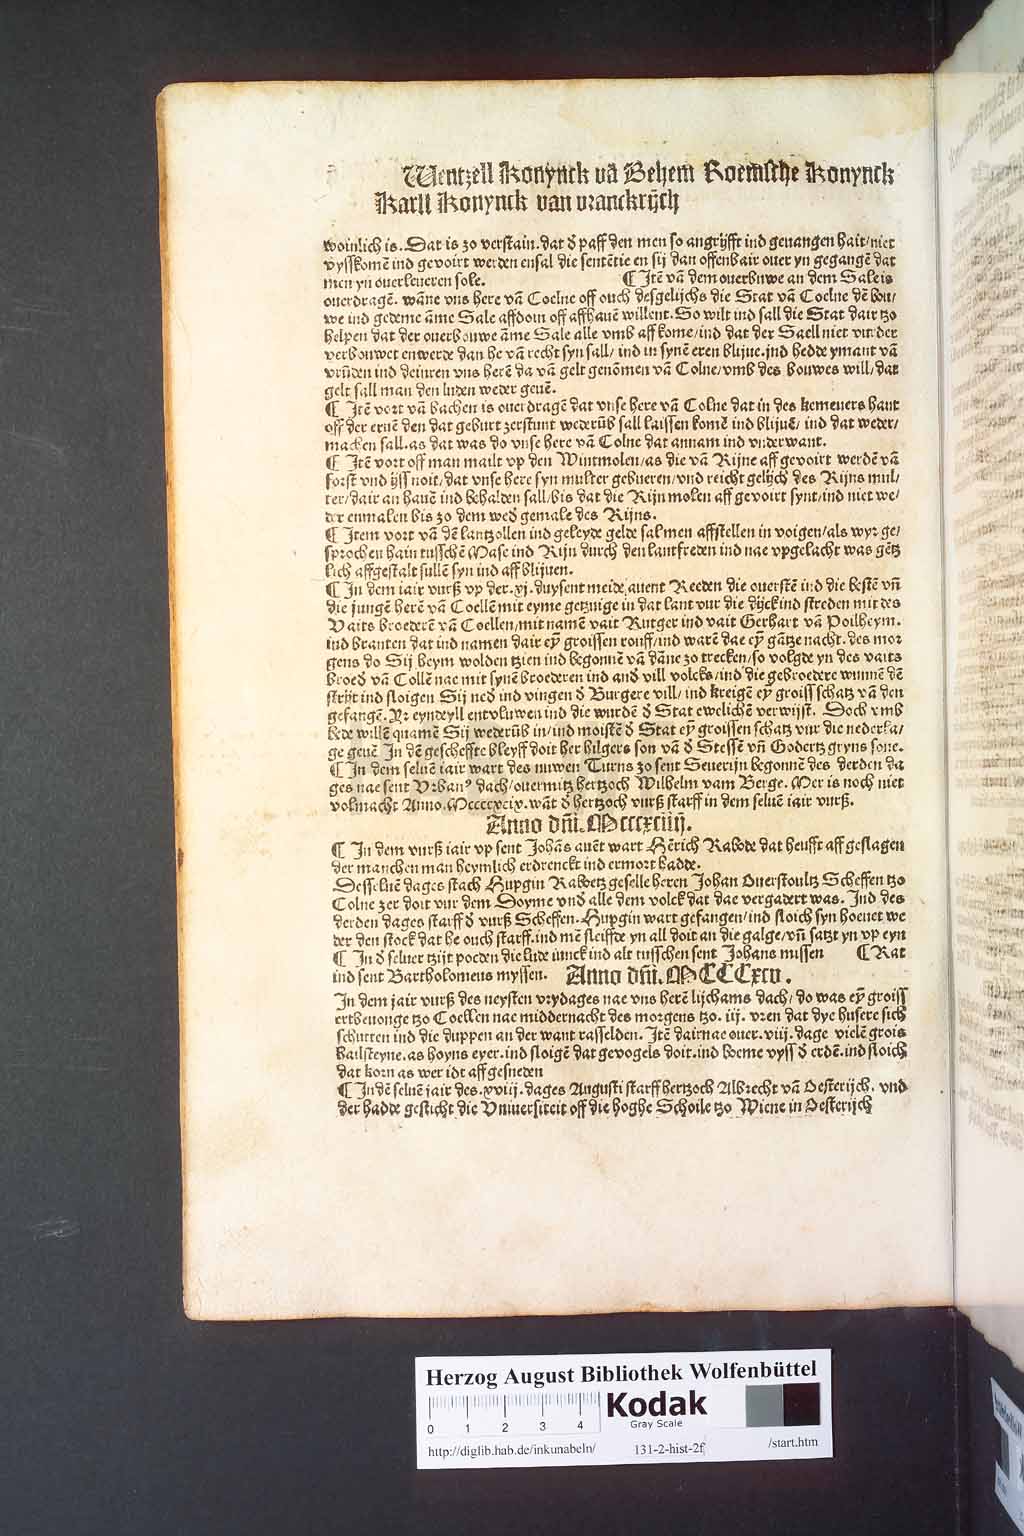 Wentzell Konynck vā Behem Roemsche Konynck
Karll Konynck van vranckrijch
woinlich is. Dat is zo verstain. dat d paff den men so angrijfft ind geuangen hait/niet
vysskomē ind gevoirt werden ensal die sentētie en sij dan offenbair ouer yn gegangē dat
men yn ouerleueren sole. ¶ Itē vā dem ouerbuwe an dem Sale is
ouerdragē. wāne vns here vā Coelne off ouch desgelijchs die Stat vā Coelne dē bou/
we ind gedeme āme Sale affdoin off affhauē willent. So wilt ind sall die Stat dair tzo
helpen dat der ouerbouwe āme Sale alle vmb aff kome/ind dat der Saell niet vurder
verbouwet enwerde dan he vā recht syn sall/ ind in synē eren blijue. ind hedde ymant vā
vrūden ind deinren vns herē da vā gelt genōmen vā Colne/vmb des bouwes will/dat
gelt sall man den luden weder geuē.
¶ Itē vort vā bachen is ouerdragē dat vnse here vā Colne dat in des kemeuers haut
off der eruē den dat geburt zerstunt wederūb sall laissen komē ind blijuē/ ind dat weder/
machen sall. as dat was do vnse here vā Colne dat annam ind vnderwant.
¶ Itē vort off man mailt vp den Wintmolen/as die vā Rijne aff gevoirt werdē vā
forst vnd ijss noit/dat vnse here syn multer gebueren/vnd reicht gelijch des Rijns mul/
ter/dair an hauē ind behalden sall/bis dat die Rijnmolen aff gevoirt synt/ind niet we/
der enmalen bis zo dem wed gemale des Rijns.
¶ Item vort vā dē lantzollen ind geleyde gelde salmen affstellen in voigen/als wyr ge/
sprochen hain tusschē Mase ind Rijn durch den lantfreden ind nae vpgelacht was gētz
lich affgestalt sullē syn ind aff blijuen.
¶ In dem iair vurß vp der. xj. duysent meide auent Reeden die ouerstē ind die bestē vn̄
die jungē herē vā Coellē mit eyme getzuige in dat lant vur die dijck ind streden mit des
Vaits broederē vā Coellen/mit namē vait Rutger ind vait Gerhart vā Poilheym.
ind branten dat ind namen dair eȳ groissen rouff/ind warē dae eȳ gātze nacht. des mor
gens do Sij heym wolden tzien ind begonnē vā dāne zo trecken/so volgde yn des vaits
broed vā Collē nae mit synē broederen ind and vill volcks/ind die gebroedere wunnē dē
strijt ind sloigen Sij ned ind vingen d Burgere vill/ ind kreigē eȳ groiss schatz vā den
gefangē. Yr eyndeyll entvluwen ind die wurdē d Stat ewelichē verwijst. Doch vmb
bede willē quamē Sij wederūb in/ind moistē d Stat eȳ groissen schatz vur die nederla/
ge geuē In dē gescheffte bleyff doit her hilgers son vā d Stessē vn̄ Godertz gryns sone.
¶ In dem seluē iair wart des nuwen Turns zo sent Seuerijn begonnē des derden da
ges nae sent Vrbanꝰ dach/ouermitz hertzoch Wilhelm vam Berge. Mer is noch niet
volmacht Anno. Mccccxcix. wāt d hertzoch vurß starff in dem seluē iair vurß.
Anno dn̄i. Mcccxciiij.
¶ In dem vurß iair vp sent Johās auēt wart Hērich Rabode dat heufft aff geslagen
der manchen man heymlich erdrenckt ind ermort hadde.
Desseluē dages stach Hupgin Raboetz geselle heren Johan Ouerstoultz Scheffen tzo
Colne zer doit vur dem Doyme vnd alle dem volck dat dae vergadert was. Ind des
derden dages starff d vurß Scheffen. Hupgin wart gefangen/ind sloich syn hoeuet we
der den stock dat he ouch starff. ind mē sleiffde yn all doit an die galge/vn̄ satzt yn vp eyn
¶ In d seluer tzijt poeden die lude iunck ind alt tusschen sent Johans missen ¶ Rat
ind sent Bartholomeus myssen. Anno dn̄i. MCCCxcv.
In dem jair vurß des neysten vrydages nae vns herē lijchams dach/ do was eȳ groiss
ertbeuonge tzo Coellen nae middernacht des morgens tzo. iij. vren dat dye husere sich
schutten ind die duppen an der want rasselden. Itē dairnae ouer. viij. dage vielē grois
hailsteyne. as hoyns eyer. ind sloigē dat gevogels doit. ind boeme vyss d erdē. ind sloich
dat korn as wer idt aff gesneden
¶ In dē seluē jair des. xviij. dages Augusti starff hertzoch Albrecht vā Oesterijch. vnd
der hadde gesticht die Vniuersiteit off die hoghe Schoile tzo Wiene in Oesterijch
Herzog August Bibliothek Wolfenbüttel
0 1 2 3 4
Kodak
Gray Scale
http://diglib.hab.de/inkunabeln/ 131-2-hist-2f /start.htm